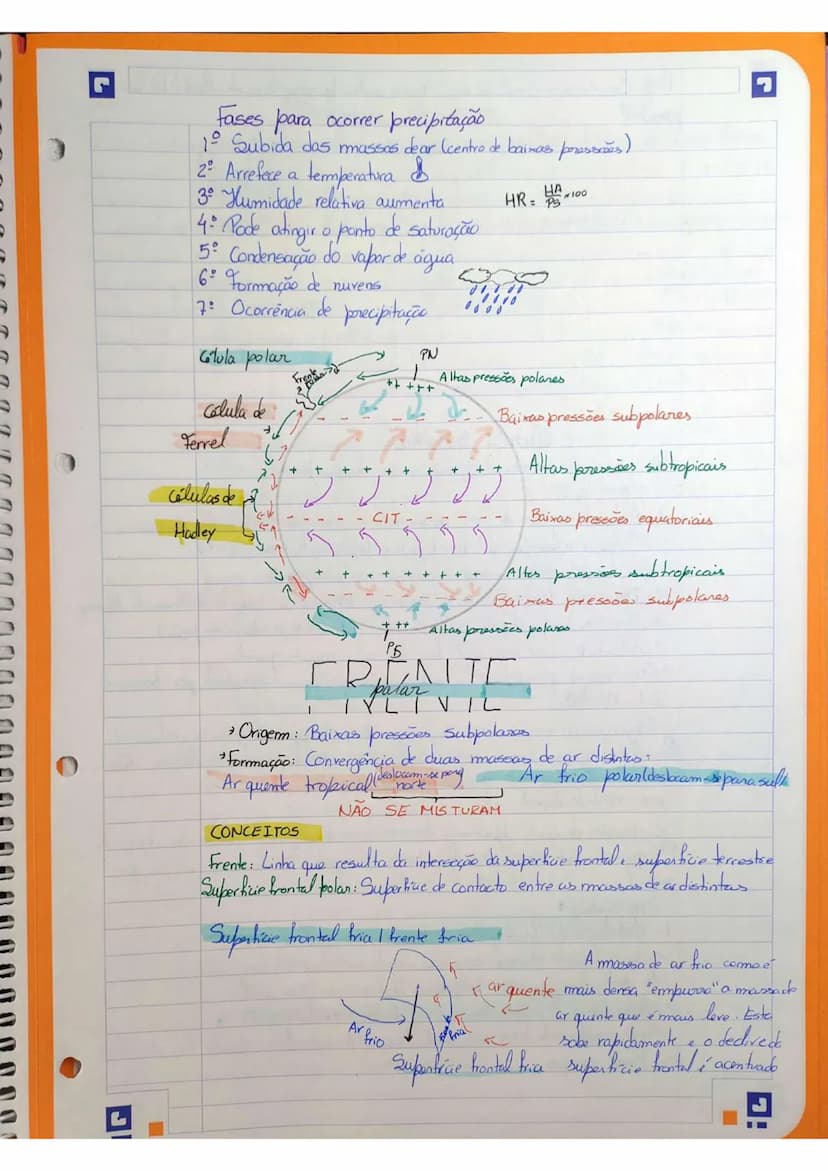 Fases para ocorrer precipitação
1º Subida das massas de ar (centro de baixas pressões)
2º Arrefece a temperatura
3º Humidade relativa aumenta HR = HA/PS × 100
4º Pode atingir o ponto de saturação
5º Condensação do vapor de água
6º Formação de nuvens
7º Ocorrência de precipitação
Célula polar
PN
Frente polar
++ +++ Altas pressões polares
Célula de Ferrel
Baixas pressões subpolares
Altas pressões subtropicais
Células de Hadley
CIT
Baixas pressões equatoriais
Altas pressões subtropicais
Baixas pressões subpolares
+ ++ Altas pressões polares
PS
FRENTE
polar
→ Origem: Baixas pressões subpolares
→ Formação: Convergência de duas massas de ar distintas:
Ar quente tropical (deslocam-se para norte) Ar frio polar (deslocam-se para sul)
NÃO SE MISTURAM
CONCEITOS
Frente: Linha que resulta da interseção da superfície frontal e superfície terrestre
Superfície frontal polar: Superfície de contacto entre as massas de ar distintas
Superfície frontal fria / frente fria
A massa de ar frio como é
ar quente mais densa "empurra" a massa de
ar quente que é mais leve. Esta
Ar frio
fria
sobe rapidamente e o declive da
Superfície frontal fria superfície frontal é acentuado